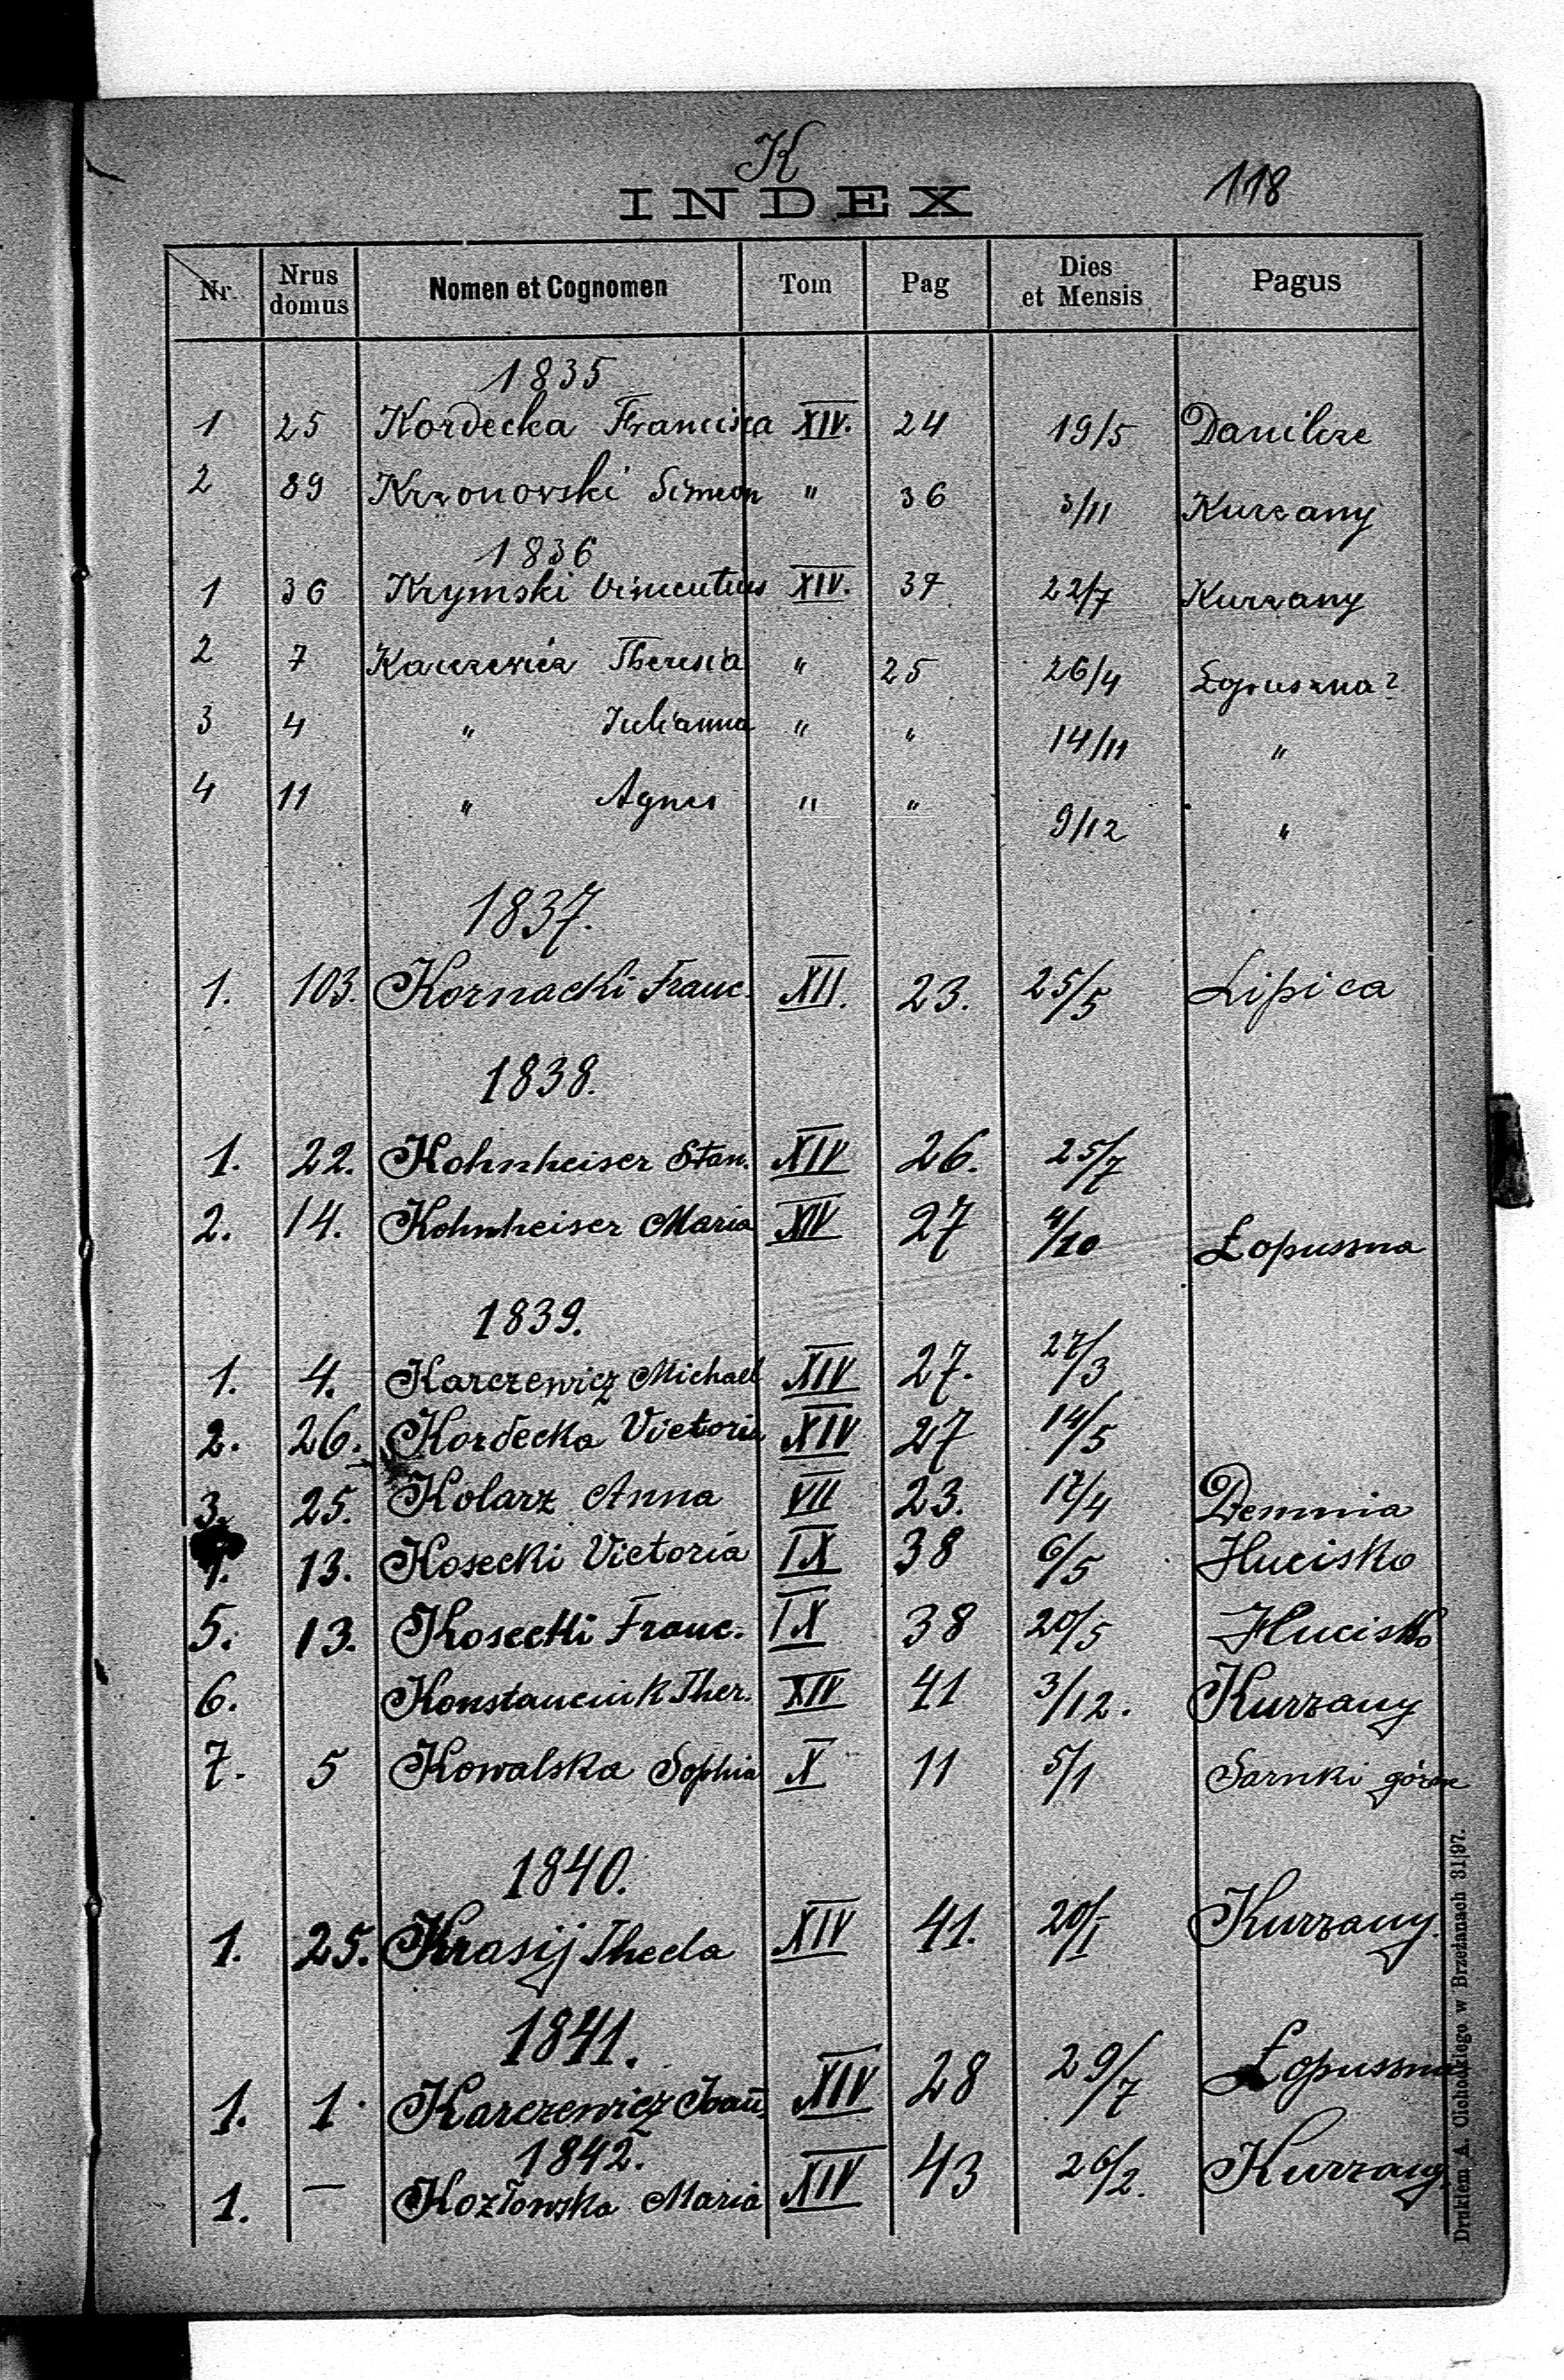 K
INDEX
118
Nr. Nrus domus Nomen et Cognomen Tom Pag Dies et Mensis Pagus
1835
1 25 Kordecka Francisca XIV. 24 19/5 Danilcze
2 89 Krzonowski Simeon " 36 3/11 Kurzany
1836
1 36 Krymski Vincentius XIV. 37 22/7 Kurzany
2 7 Karczewicz Theresia " 25 26/4 Łopuszna?
3 4 " Julianna " " 14/11 "
4 11 " Agnes " " 9/12 "
1837.
1. 103. Kornacki Franc. XII. 23. 25/5 Lipica
1838.
1. 22. Kohnheiser Stan. XIV 26. 25/7
2. 14. Kohnheiser Maria XIV 27 4/10 Łopuszna
1839.
1. 4. Karczewicz Michael XIV 27. 27/3
2. 26. Kordecka Victoria XIV 27 14/5
3. 25. Kolarz Anna VII 23. 17/4 Demnia
4. 13. Kosecki Victoria IX 38 6/5 Hucisko
5. 13. Kosecki Franc. IX 38 20/5 Hucisko
6. Konstanciuk Ther. XIV 41 3/12. Kurzany
7. 5 Kowalska Sophia X 11 5/1 Sarnki górne
1840.
1. 25. Krasij Thecla XIV 41. 20/1 Kurzany.
1841.
1. 1. Karczewicz Joan. XIV 28 29/7 Łopuszna
1842.
1. — Kozłowska Maria XIV 43 26/2. Kurzany
Drukiem A. Cichockiego w Brzeżanach 31|97.